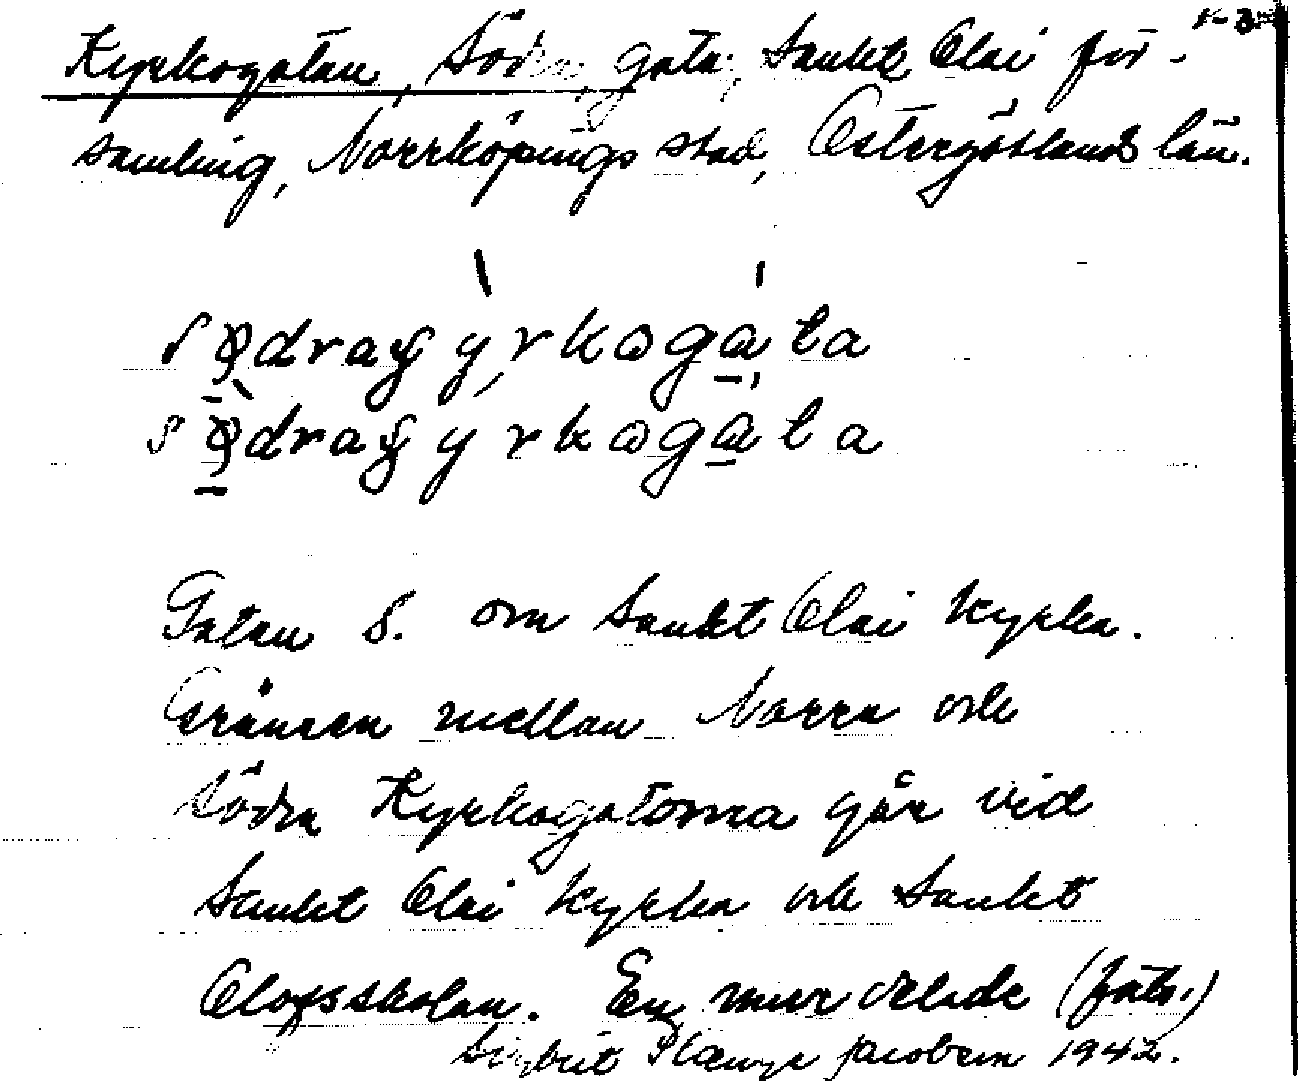 Kyrkogatan, Södra, gata, Sankt Olai för-
samling, Norrköpings stad, Östergötlands län.
Gatan S. om Sankt Olai kyrka.
Gränsen mellan Norra och
Södra Kyrkogatorna går vid
Sankt Olai kyrka och Sankt
Olofsskolan. En mur delade (forts.)
Jacobsen 1942.